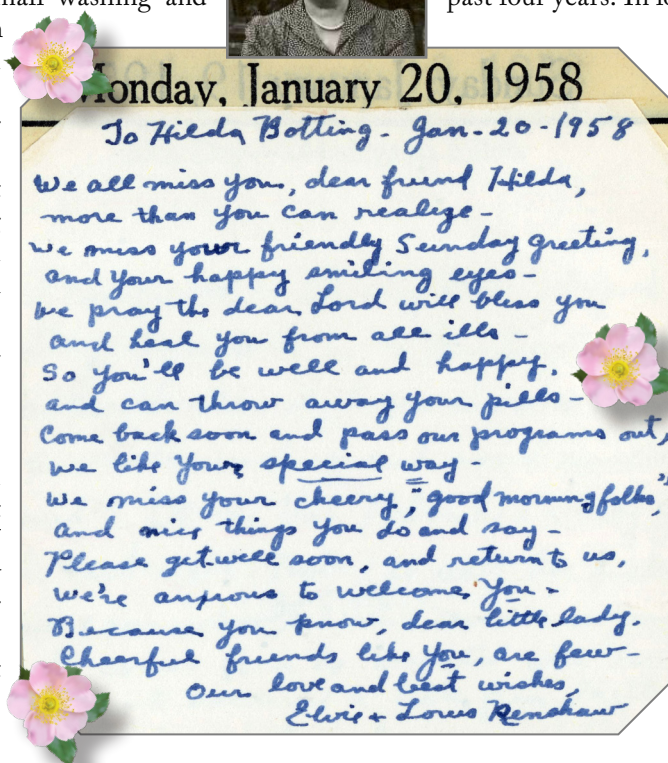 hair washing and
past four years. In
Monday, January 20, 1958
To Hilda Botting - Jan - 20 - 1958
We all miss you, dear friend Hilda,
more than you can realize -
We miss your friendly Sunday greeting,
and your happy smiling eyes -
We pray the dear Lord will bless you
and heal you from all ills -
So you'll be well and happy,
and can throw away your pills -
Come back soon and pass our programs out,
we like your special way -
We miss your cheery, "good morning folks,"
And nice things you do and say -
Please get well soon, and return to us,
We're anxious to welcome you -
Because you know, dear little lady,
Cheerful friends like you, are few -
Our love and best wishes,
Elvie + Louis Renshaw